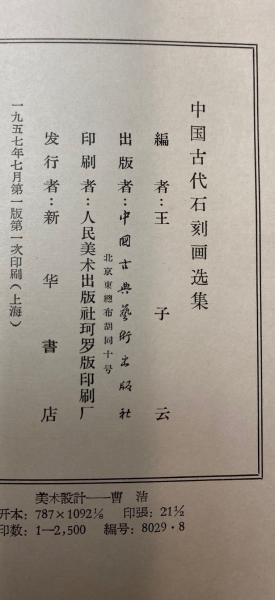 中国古代石刻画选集
編者：王子云
出版者：中國古典藝術出版社
北京東總布胡同十号
印刷者：人民美术出版社珂罗版印刷厂
发行者：新华書店
一九五七年七月第一版第一次印刷（上海）
美术設計——曹洁
开本：787×1092⅛ 印張：21½
印数：1—2,500 編号：8029·8